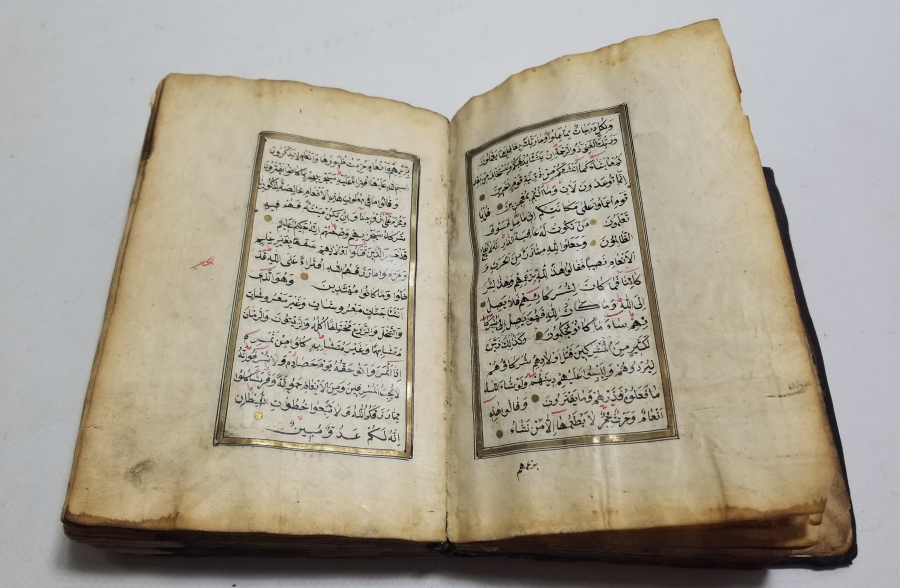 ولكل درجات مما عملوا وما ربك بغافل عما يعملون
وربك الغني ذو الرحمة ان يشأ يذهبكم ويستخلف من بعد
كم ما يشاء كما انشأكم من ذرية قوم اخرين
انما توعدون لات وما انتم بمعجزين قل يا
قوم اعملوا على مكانتكم اني عامل فسوف
تعلمون من تكون له عاقبة الدار انه لا يفلح
الظالمون وجعلوا لله مما ذرأ من الحرث و
الانعام نصيبا فقالوا هذا لله بزعمهم وهذا لشر
كائنا فما كان لشركائهم فلا يصل
الى الله وما كان لله فهو يصل الى شركا
ئهم ساء ما يحكمون وكذلك زين
لكثير من المشركين قتل اولادهم شركاؤهم
ليردوهم وليلبسوا عليهم دينهم ولو شاء الله
ما فعلوه فذرهم وما يفترون وقالوا هذه
انعام وحرث حجر لا يطعمها الا من نشاء
بزعمهم
بزعمهم وانعام حرمت ظهورها وانعام لا يذكرون
اسم الله عليها افتراء عليه سيجزيهم بما كانوا يفترون
وقالوا ما في بطون هذه الانعام خالصة لذكورنا
ومحرم على ازواجنا وان يكن ميتة فهم فيه
شركاء سيجزيهم وصفهم انه حكيم عليم
قد خسر الذين قتلوا اولادهم سفها بغير علم
وحرموا ما رزقهم الله افتراء على الله قد
ضلوا وما كانوا مهتدين وهو الذي
انشأ جنات معروشات وغير معروشات
والنخل والزرع مختلفا اكله والزيتون والرمان
متشابها وغير متشابه كلوا من ثمره
اذا اثمر واتوا حقه يوم حصاده ولا تسرفوا انه
لا يحب المسرفين ومن الانعام حمولة وفرشا كلوا
مما رزقكم الله ولا تتبعوا خطوات الشيطان
انه لكم عدو مبين